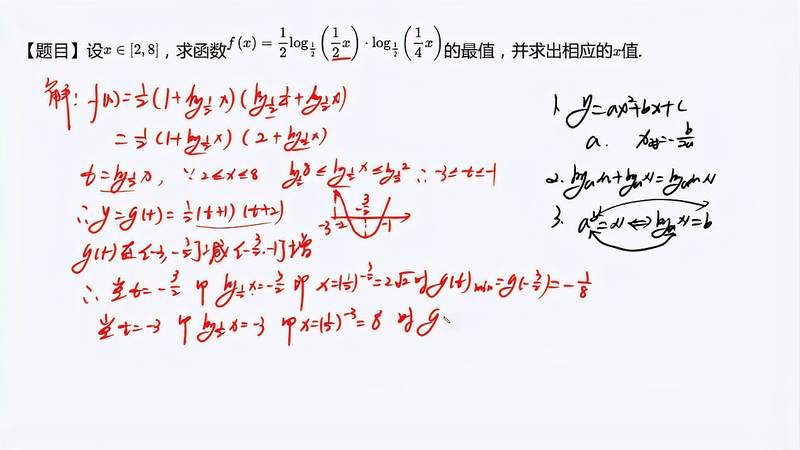 【题目】设x∈[2,8]，求函数f(x)=\frac{1}{2}log_{\frac{1}{2}}(\frac{1}{2}x)·log_{\frac{1}{2}}(\frac{1}{4}x)的最值，并求出相应的x值.
解：f(x)=\frac{1}{2}(1+log_{\frac{1}{2}}x)(log_{\frac{1}{2}}\frac{1}{4}+log_{\frac{1}{2}}x)
=\frac{1}{2}(1+log_{\frac{1}{2}}x)(2+log_{\frac{1}{2}}x)
t=log_{\frac{1}{2}}x，∵2≤x≤8 log_{\frac{1}{2}}8≤log_{\frac{1}{2}}x≤log_{\frac{1}{2}}2 ∴-3≤t≤-1
∴y=g(t)=\frac{1}{2}(t+1)(t+2)
-3 -2 -\frac{3}{2} -1
g(t)在[-3,-\frac{3}{2}]减[-\frac{3}{2},-1]增
∴当t=-\frac{3}{2} 即log_{\frac{1}{2}}x=-\frac{3}{2} 即x=(\frac{1}{2})^{-\frac{3}{2}}=2√2时g(t)_{min}=g(-\frac{3}{2})=-\frac{1}{8}
当t=-3 即log_{\frac{1}{2}}x=-3 即x=(\frac{1}{2})^{-3}=8 时g
1. y=ax²+bx+c
a. x对=-\frac{b}{2a}
2. log_a M+log_a N=log_a MN
3. a^b=N⇔log_a N=b